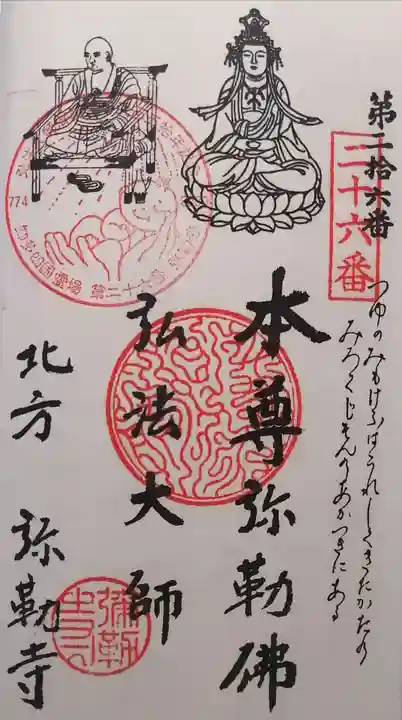 第二拾六番
二十六番
つゆのみもけふはうれしくきたかたの
みろくじそんのあかつきにある
本尊弥勒佛
弘法大師
北方 弥勒寺
774
第二十六番
弥勒寺